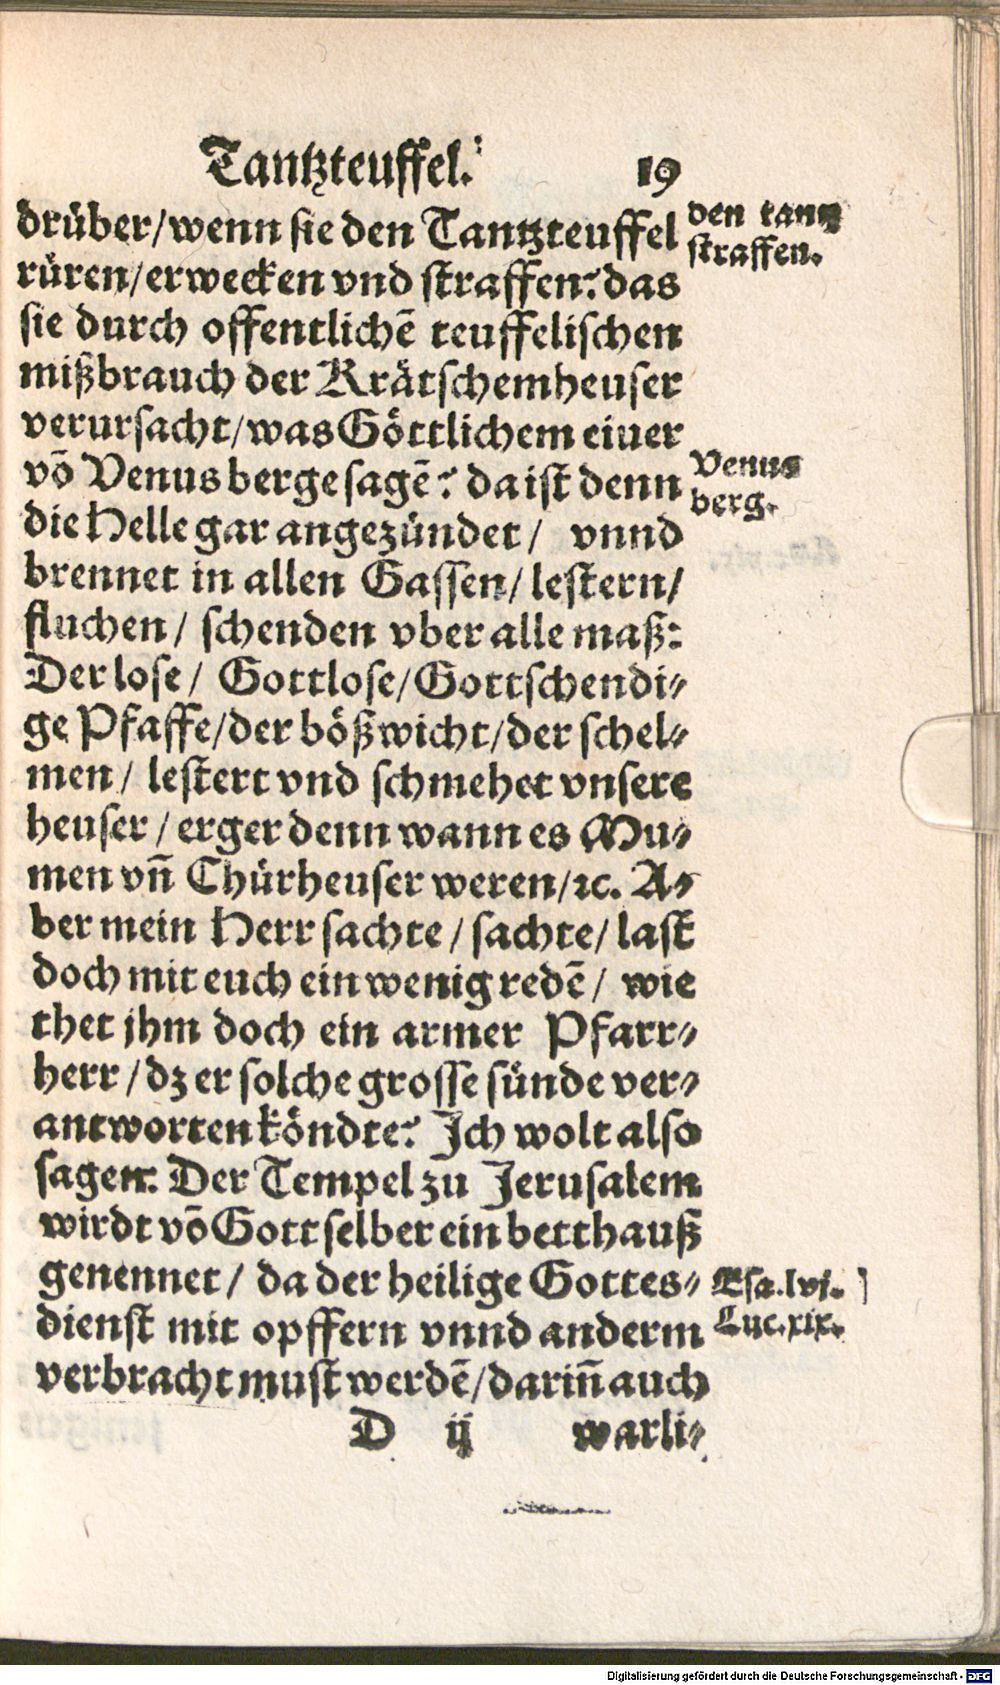 Tantzteuffel. 19
drüber/wenn sie den Tantzteuffel
rüren/erwecken vnd straffen? das
sie durch offentlichē teuffelischen
mißbrauch der Krätschemheuser
verursacht/was Göttlichem eiuer
võ Venus berge sagē? da ist denn
die Helle gar angezündet/ vnnd
brennet in allen Gassen/lestern/
fluchen/ schenden vber alle maß:
Der lose/ Gottlose/Gottschendi-
ge Pfaffe/der bößwicht/der schel-
men/ lestert vnd schmehet vnsere
heuser/erger denn wann es Mu-
men vñ Chürheuser weren/ꝛc. A-
ber mein Herr sachte/sachte/last
doch mit euch ein wenig redē/ wie
thet jhm doch ein armer Pfarr-
herr/dz er solche grosse sünde ver-
antworten köndte? Ich wolt also
sagen: Der Tempel zu Jerusalem
wirdt võ Gott selber ein betthauß
genennet/ da der heilige Gottes-
dienst mit opffern vnnd anderm
verbracht must werdē/dariñ auch
D ij warli-
den tantz
straffen.
Venus
berg.
Esa.lvi.
Luc.xix.
Digitalisierung gefördert durch die Deutsche Forschungsgemeinschaft - DFG